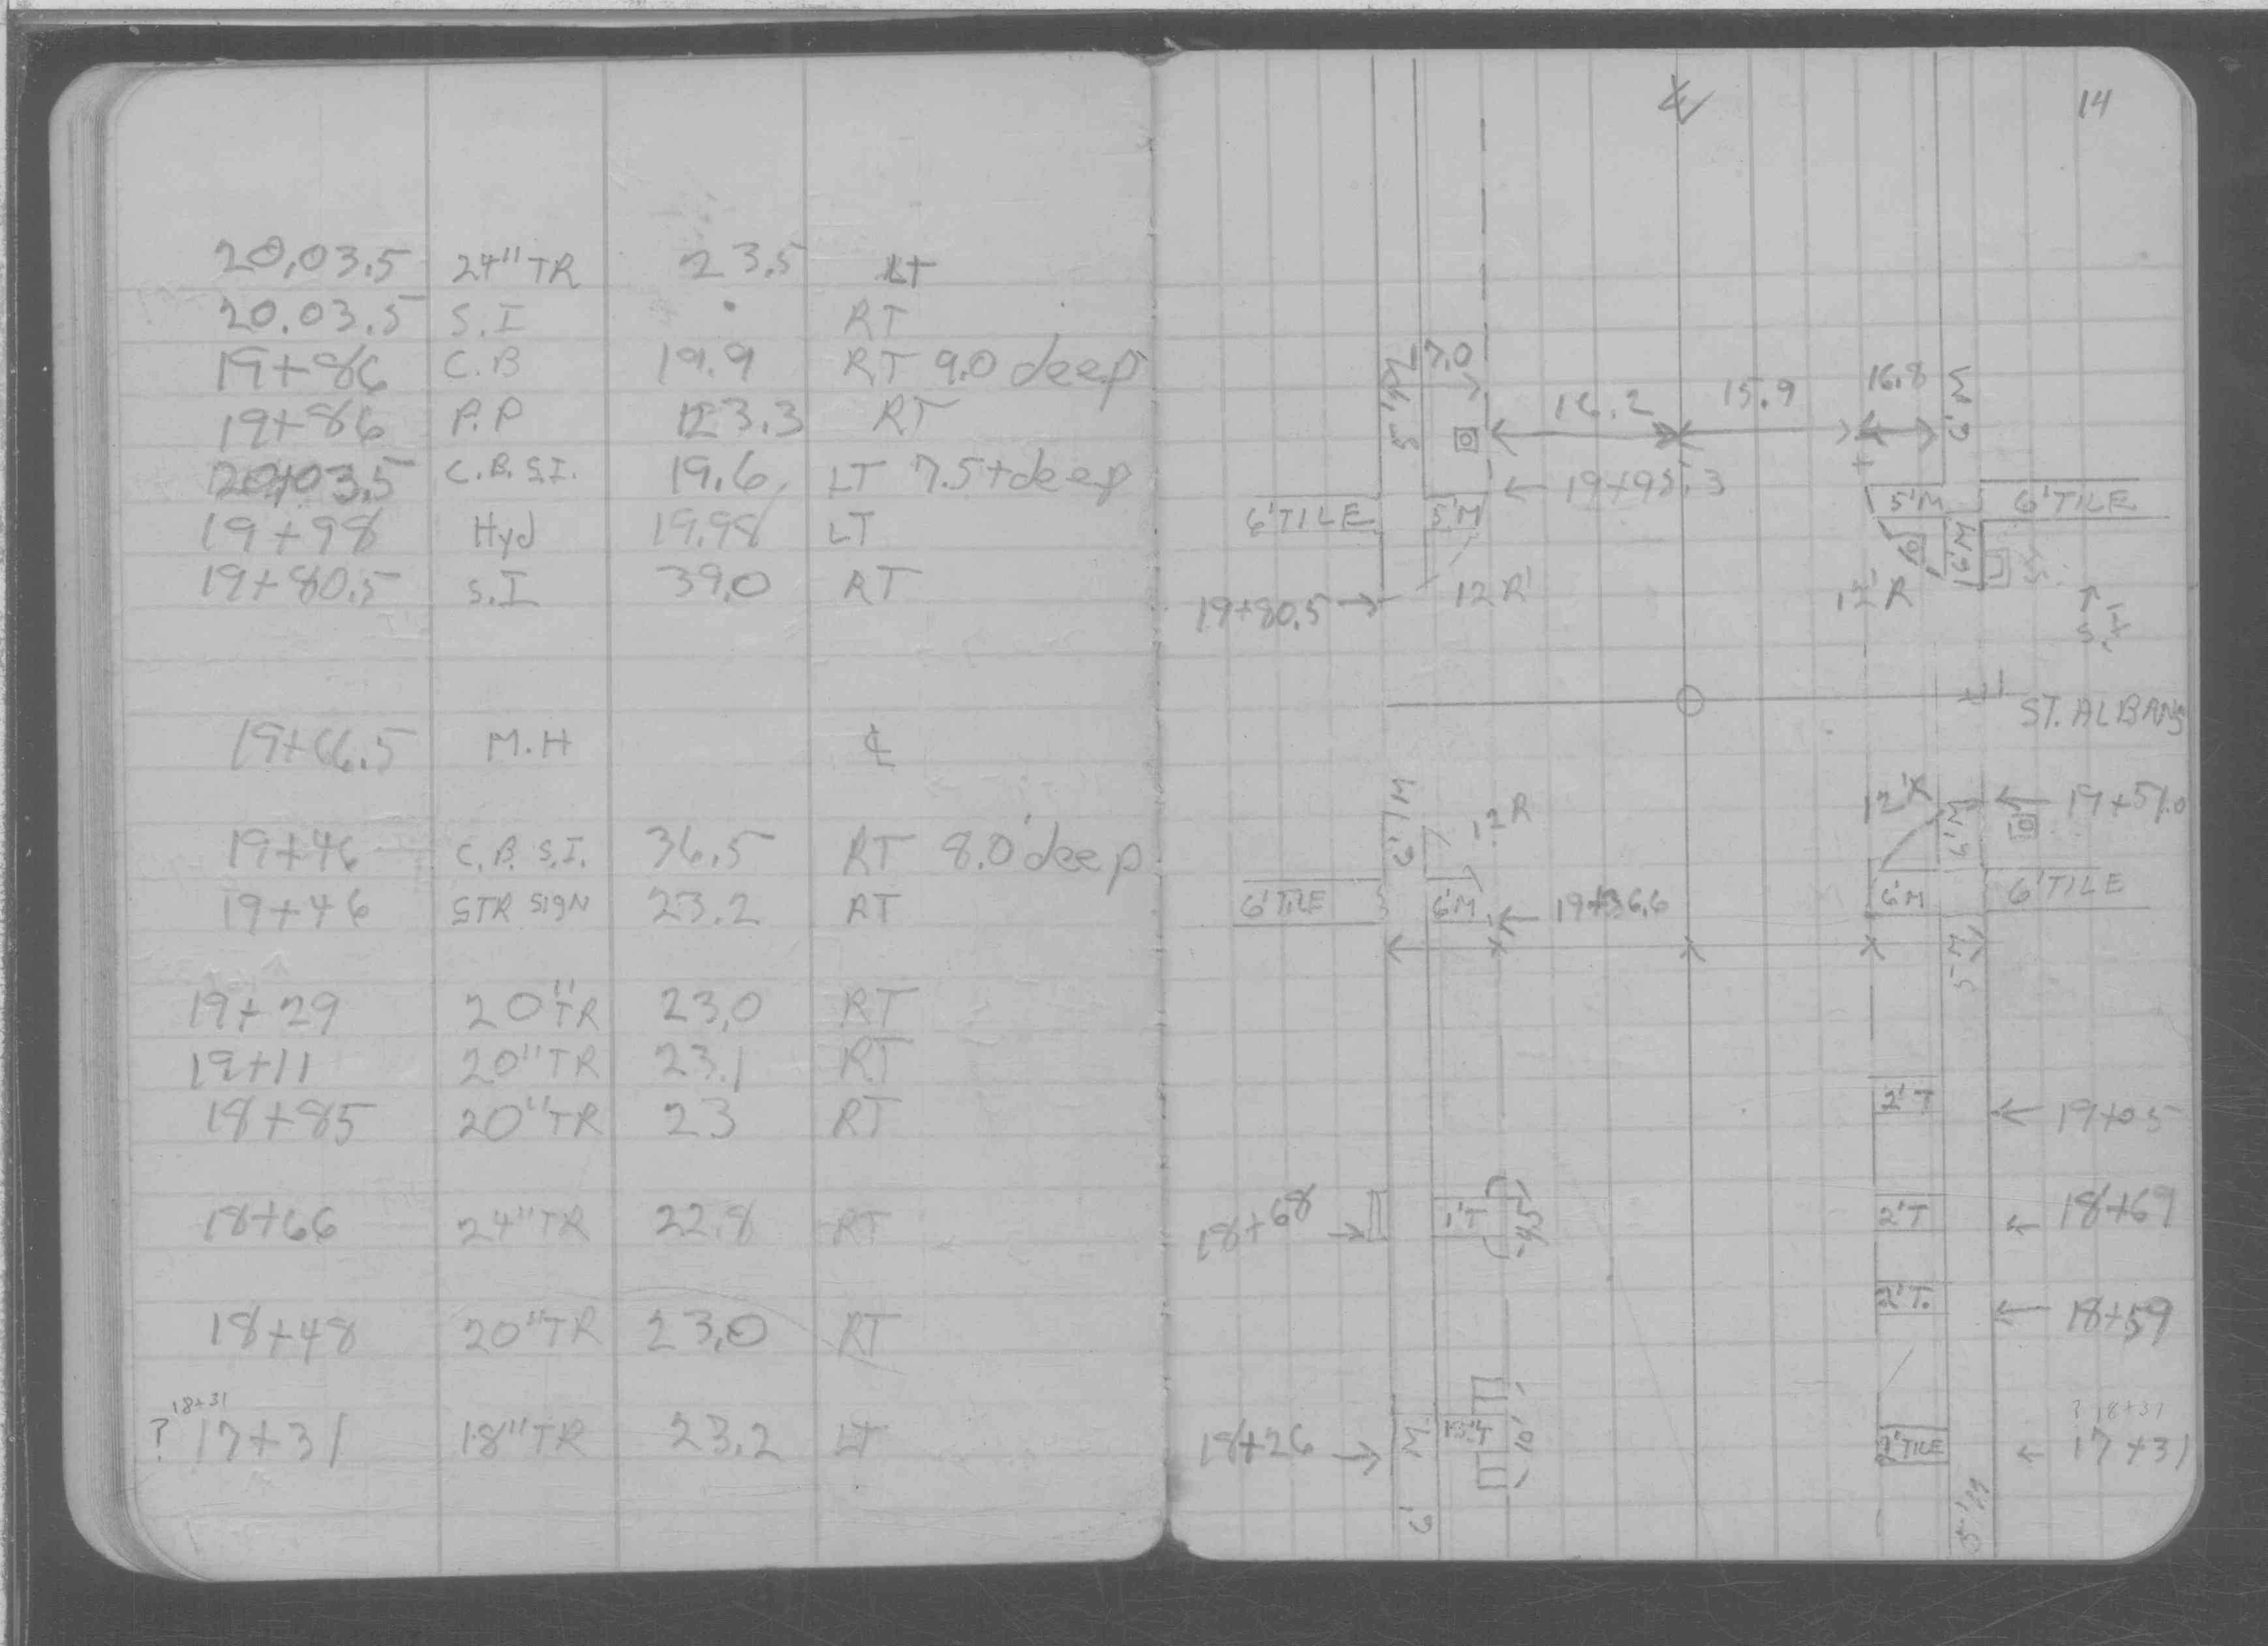 20,03.5 24"TR 23.5 LT
20.03.5 S.I RT
19+86 C.B 19.9 RT 9.0 deep
19+86 P.P 23.3 RT
20+03.5 C.B.S.I. 19.6 LT 7.5+deep
19+98 Hyd 19.98 LT
19+80.5 S.I 39.0 RT
19+66.5 M.H ℄
19+46 C.B. S.I. 36.5 RT 8.0' deep
19+46 STR SIGN 23.2 RT
19+29 20"TR 23.0 RT
19+11 20"TR 23.1 RT
18+85 20"TR 23 RT
18+66 24"TR 22.8 RT
18+48 20"TR 23.0 RT
18+31
? 17+31 18"TR 23.2 LT
14
℄
7.0
5'M
16.2 15.9 16.8
6'M
19+95.3
6'TILE 5'M 5'M 6'TILE
6'M
19+80.5 12R' 12'R
S.I
ST. ALBANS
6'M 12R 12'R 6'M 19+51.0
6'TILE 6'M 19+36.6 6'M 6'TILE
5'M
2'T 19+05
18+68 1'T 4.5 2'T 18+69
2'T. 18+59
? 18+31
18+26 6' M 10' 2'TILE 17+31
5'M